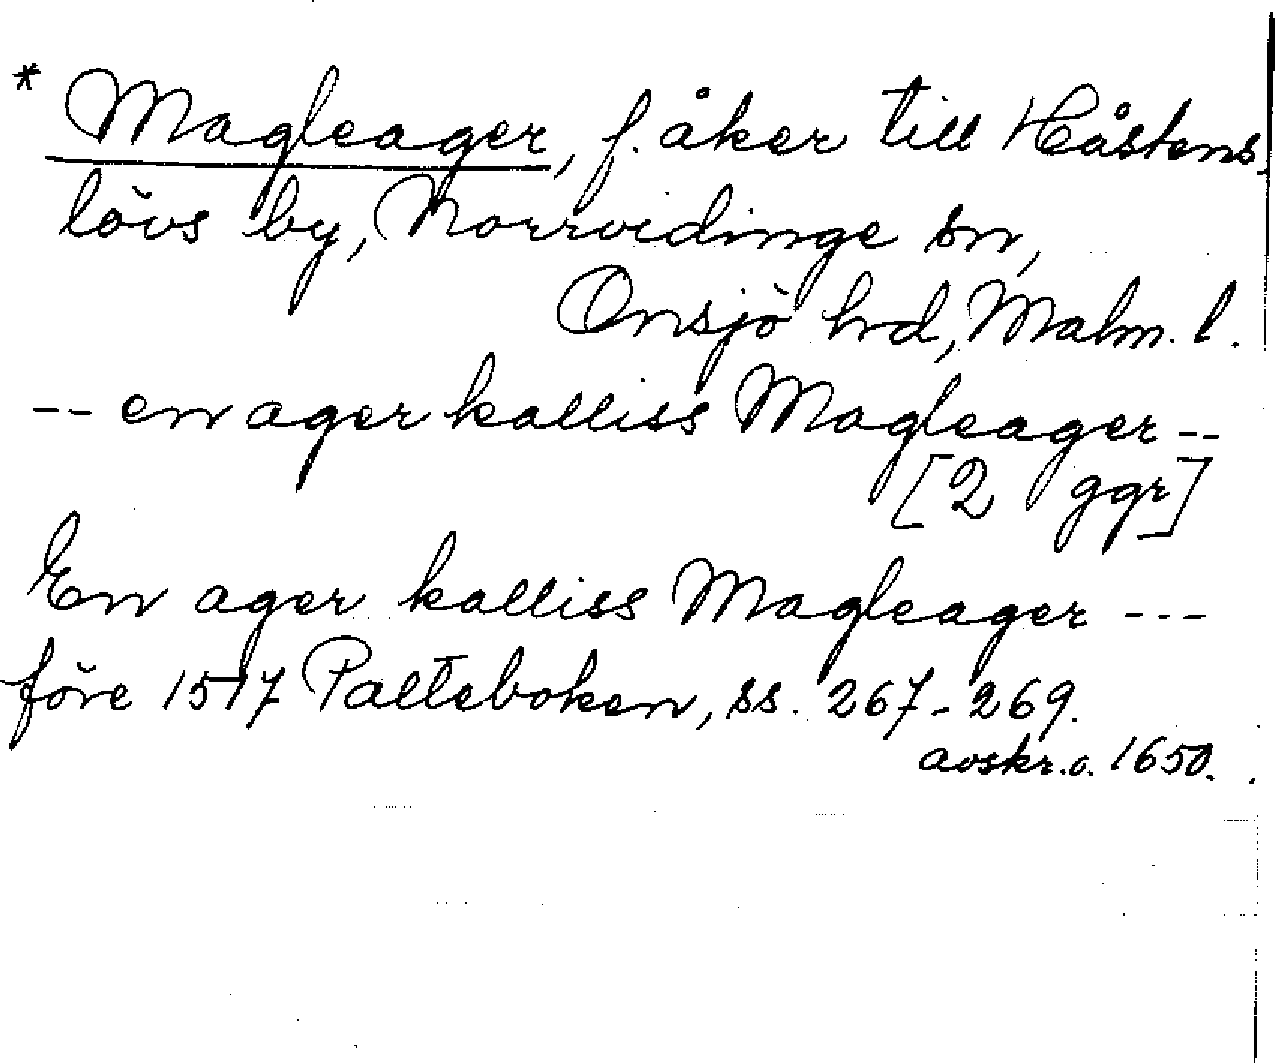 * Magleager, f. åker till Håstens-
lövs by, Norrvidinge sn,
Onsjö hrd, Malm. l.
-- en ager kalliss Magleager --
[2 ggr]
En ager kalliss Magleager ---
före 1517 Palteboken, ss. 267-269.
avskr. o. 1650.